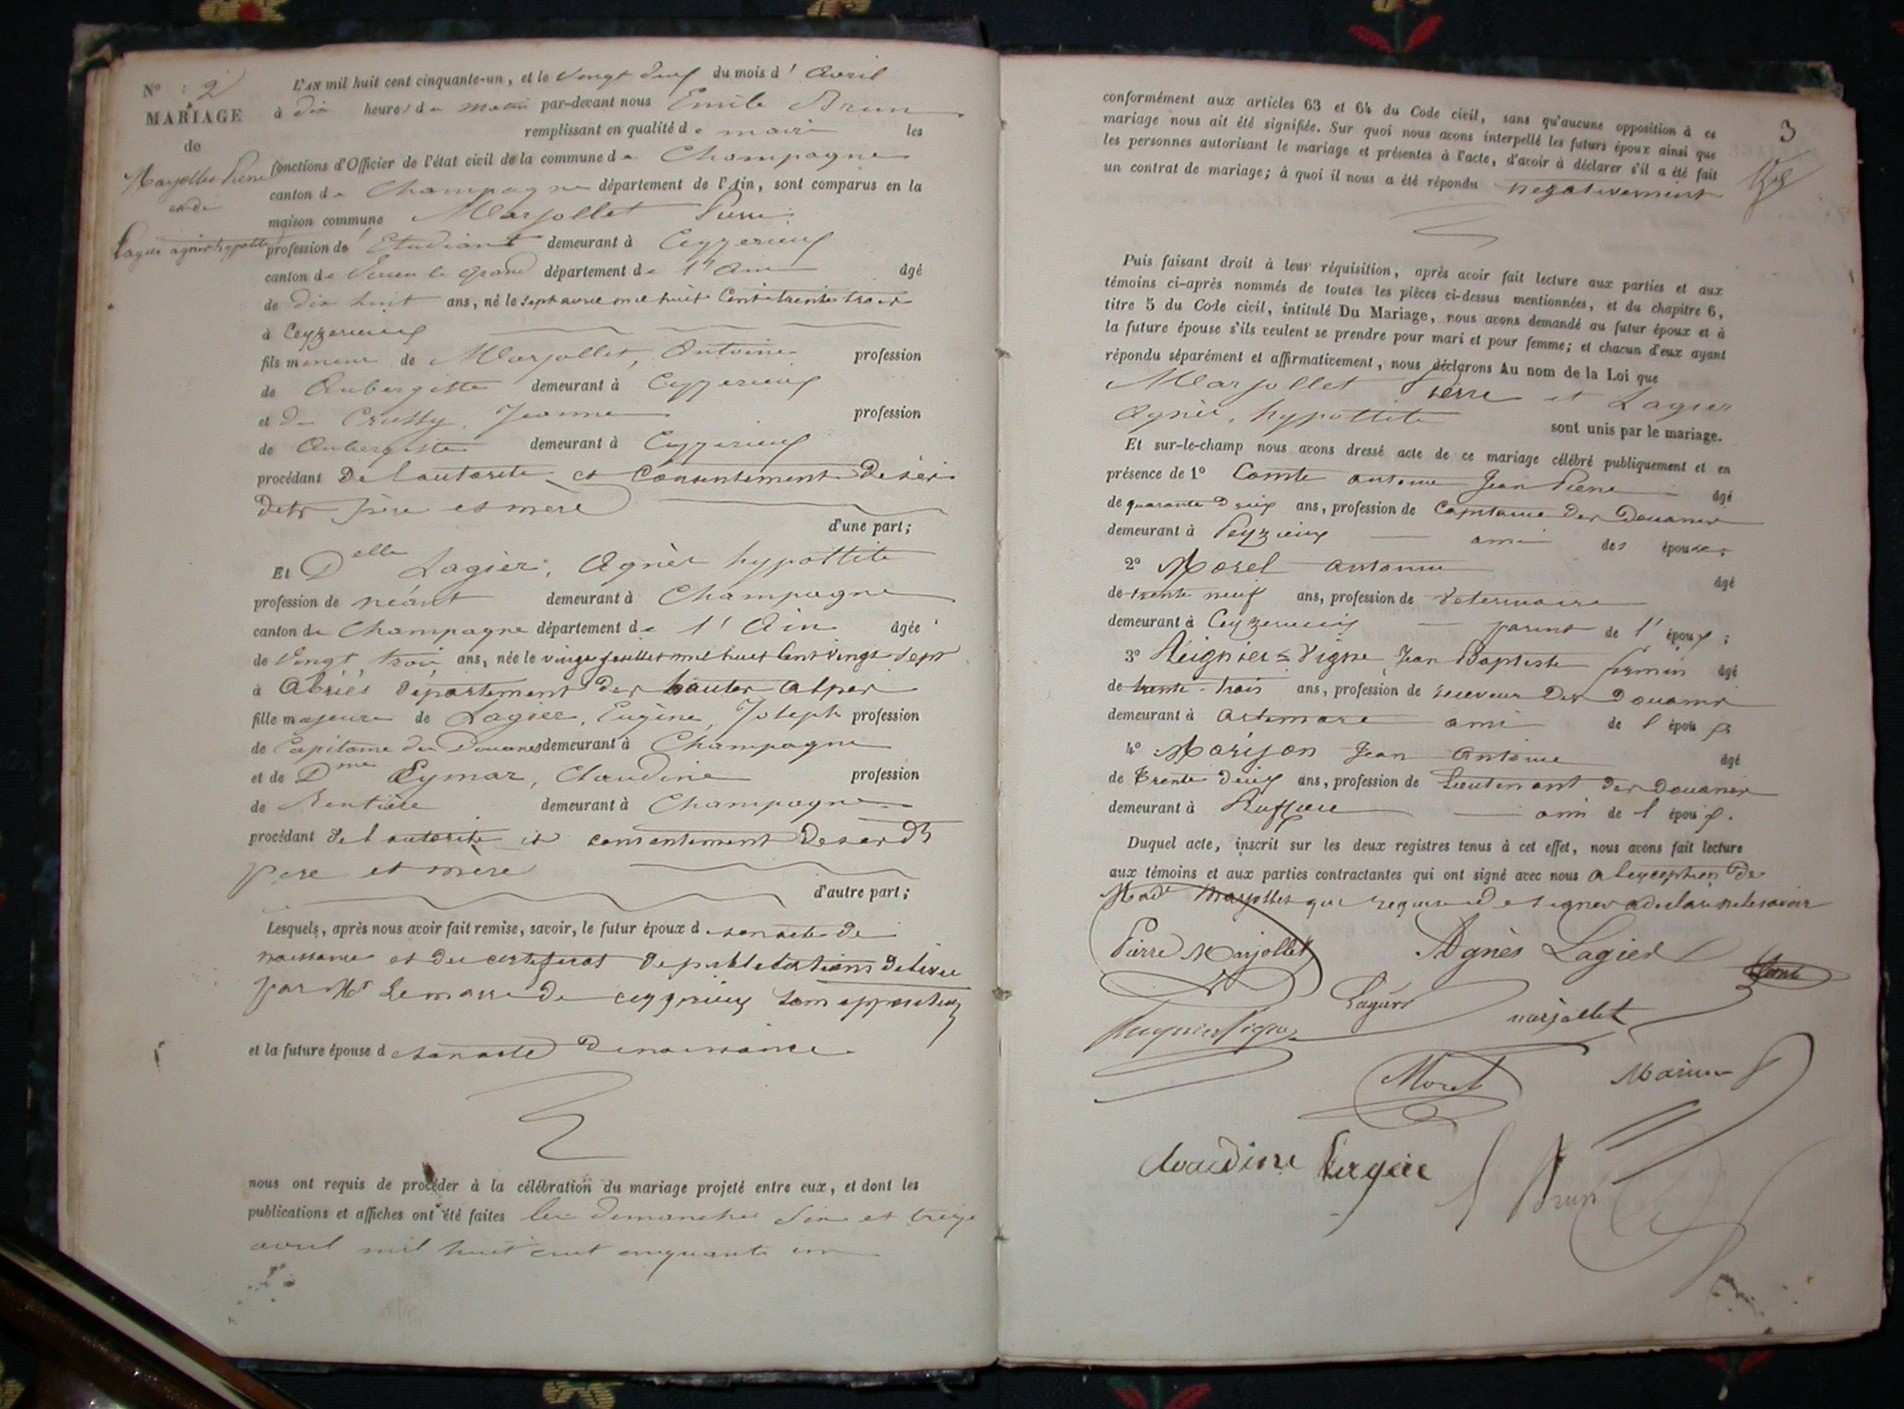 N° 2
MARIAGE
de
Marjollet Pierre
et de
Lagier agnès hypolite
L'AN mil huit cent cinquante-un, et le vingt deux du mois d' Avril
à dix heures du matin par-devant nous Emile Brun
remplissant en qualité de maire les
fonctions d'Officier de l'état civil de la commune de Champagne
canton de Champagne département de l'Ain, sont comparus en la
maison commune Marjollet Pierre
profession de Etudiant demeurant à Ceyzerieux
canton de Virieu le grand département de l'Ain âgé
de dix huit ans, né le sept avril mil huit cent trente trois
à Ceyzerieux
fils mineur de Marjollet, Antoine profession
de Aubergiste demeurant à Ceyzerieux
et de Crussy, Jeanne profession
de Aubergiste demeurant à Ceyzerieux
procédant De l'autorité et Consentement de ses
dits père et mère
d'une part;
Et Delle Lagier, Agnès hypottite
profession de néant demeurant à Champagne
canton de Champagne département de l'Ain âgée
de Vingt trois ans, née le vingt juillet mil huit cent vingt sept
à Abriès département des hautes alpes
fille majeure de Lagier, Eugène, Joseph profession
de Capitaine des Douanes demeurant à Champagne
et de Dme Eymar, Claudine profession
de Rentière demeurant à Champagne
procédant de l'autorité et consentement de ses dts
père et mère
d'autre part;
Lesquels, après nous avoir fait remise, savoir, le futur époux de son acte de
naissance et du certificat de publications délivré
par Mr Le maire de ceyzerieux sans opposition
et la future épouse de son acte de naissance
nous ont requis de procéder à la célébration du mariage projeté entre eux, et dont les
publications et affiches ont été faites les dimanches six et treize
avril mil huit cent cinquante un
3
conformément aux articles 63 et 64 du Code civil, sans qu'aucune opposition à ce
mariage nous ait été signifiée. Sur quoi nous avons interpellé les futurs époux ainsi que
les personnes autorisant le mariage et présentes à l'acte, d'avoir à déclarer s'il a été fait
un contrat de mariage; à quoi il nous a été répondu négativement
Puis faisant droit à leur réquisition, après avoir fait lecture aux parties et aux
témoins ci-après nommés de toutes les pièces ci-dessus mentionnées, et du chapitre 6,
titre 5 du Code civil, intitulé Du Mariage, nous avons demandé au futur époux et à
la future épouse s'ils veulent se prendre pour mari et pour femme; et chacun d'eux ayant
répondu séparément et affirmativement, nous déclarons Au nom de la Loi que
Marjollet Pierre et Lagier
Agnès, hypottite sont unis par le mariage.
Et sur-le-champ nous avons dressé acte de ce mariage célébré publiquement et en
présence de 1° Comte antoine Jean Pierre âgé
de quarante deux ans, profession de Capitaine des Douanes
demeurant à Peyzieux ami des époux
2° Morel antoine âgé
de trente neuf ans, profession de Veterinaire
demeurant à Ceyzerieux parent de l'époux;
3° Reignier-Vigne Jean Baptiste firmin âgé
de trente-trois ans, profession de receveur des douanes
demeurant à artemare ami de l'époux
4° Marijon Jean Antoine âgé
de Trente deux ans, profession de Lieutenant des Douanes
demeurant à Ruffieu ami de l'époux.
Duquel acte, inscrit sur les deux registres tenus à cet effet, nous avons fait lecture
aux témoins et aux parties contractantes qui ont signé avec nous a l'exception de
Made Marjollet qui requise de signer a déclaré ne le savoir
Pierre Marjollet Agnès Lagier Comte
Reignier Vigne Lagier marjollet
Morel
Claudine Lagier Brun